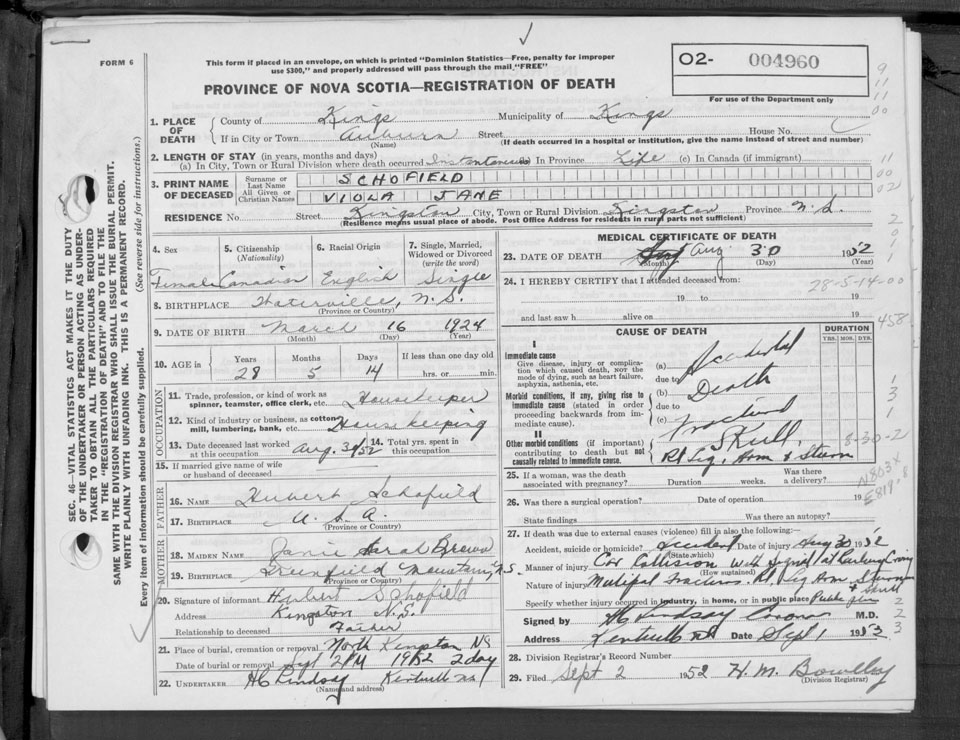 FORM 6
This form if placed in an envelope, on which is printed "Dominion Statistics—Free, penalty for improper
use $300," and properly addressed will pass through the mail "FREE"
PROVINCE OF NOVA SCOTIA—REGISTRATION OF DEATH
O2- 004960
For use of the Department only
9
11
11
00
SEC. 46—VITAL STATISTICS ACT MAKES IT THE DUTY
OF THE UNDERTAKER OR PERSON ACTING AS UNDER-
TAKER TO OBTAIN ALL THE PARTICULARS REQUIRED
IN THE "REGISTRATION OF DEATH" AND TO FILE THE
SAME WITH THE DIVISION REGISTRAR WHO SHALL ISSUE THE BURIAL PERMIT.
WRITE PLAINLY WITH UNFADING INK. THIS IS A PERMANENT RECORD.
Every item of information should be carefully supplied. (See reverse side for instructions.)
1. PLACE OF DEATH
County of Kings Municipality of Kings
If in City or Town Auburn Street House No.
(Name) (If death occurred in a hospital or institution, give the name instead of street and number)
2. LENGTH OF STAY (in years, months and days)
(a) In City, Town or Rural Division where death occurred Instantaneous In Province Life (c) In Canada (if immigrant)
11
00
02
3. PRINT NAME OF DECEASED
Surname or Last Name SCHOFIELD
All Given or Christian Names VIOLA JANE
RESIDENCE No. Street Kingston City, Town or Rural Division Kingston Province N.S.
(Residence means usual place of abode. Post Office Address for residents in rural parts not sufficient)
4. Sex 5. Citizenship (Nationality) 6. Racial Origin 7. Single, Married, Widowed or Divorced (write the word)
Female Canadian English Single
8. BIRTHPLACE Waterville, N.S.
(Province or Country)
9. DATE OF BIRTH March 16 1924
(Month) (Day) (Year)
10. AGE in Years Months Days If less than one day old
28 5 14 hrs. or min.
OCCUPATION
11. Trade, profession, or kind of work as
spinner, teamster, office clerk, etc. Housekeeper
12. Kind of industry or business, as cotton
mill, lumbering, bank, etc. Housekeeping
13. Date deceased last worked at this occupation Aug. 30/52 14. Total yrs. spent in this occupation
15. If married give name of wife
or husband of deceased
FATHER
16. NAME Hubert Schofield
17. BIRTHPLACE U.S.A.
(Province or Country)
MOTHER
18. MAIDEN NAME Janie Sarah Brown
19. BIRTHPLACE Greenfield Mountain N.S.
(Province or Country)
20. Signature of informant Herbert Schofield
Address Kingston N.S.
Relationship to deceased Father
21. Place of burial, cremation or removal North Kingston NS
Date of burial or removal Sept 2 1952 2 day
22. UNDERTAKER HC Lindsay Kentville NS
(Name and address)
MEDICAL CERTIFICATE OF DEATH
23. DATE OF DEATH Aug 30 1952
(Month) (Day) (Year)
24. I HEREBY CERTIFY that I attended deceased from: 28-5-14-00
19 to 19
and last saw h alive on 19
458
CAUSE OF DEATH DURATION
YRS. MOS. DYS.
I
Immediate cause
Give disease, injury or complica-
tion which caused death, NOT the
mode of dying, such as heart failure,
asphyxia, asthenia, etc.
(a) Accidental
due to
Morbid conditions, if any, giving rise to
immediate cause (stated in order
proceeding backwards from im-
mediate cause).
(b) Death
due to
(c) Fractured
II
Other morbid conditions (if important)
contributing to death but not
causally related to immediate cause.
Skull,
Rt Leg, Arm & Sturn
8-30-2
25. If a woman, was the death Was there
associated with pregnancy? Duration weeks. a delivery?
N803X
E819
26. Was there a surgical operation? Date of operation 19
State findings Was there an autopsy?
27. If death was due to external causes (violence) fill in also the following:—
Accident, suicide or homicide? Accident Date of injury Aug 30 1952
(State which)
Manner of injury Car Collision with
(How sustained)
Nature of injury Multipal Fractures Rt Leg Arm Sturn
& Skull
Specify whether injury occurred in industry, in home, or in public place Public place
Signed by HC Lindsay Coroner M.D.
Address Kentville NS Date Sept 1 1953
28. Division Registrar's Record Number
29. Filed Sept 2 1952 H. M.
(Division Registrar)